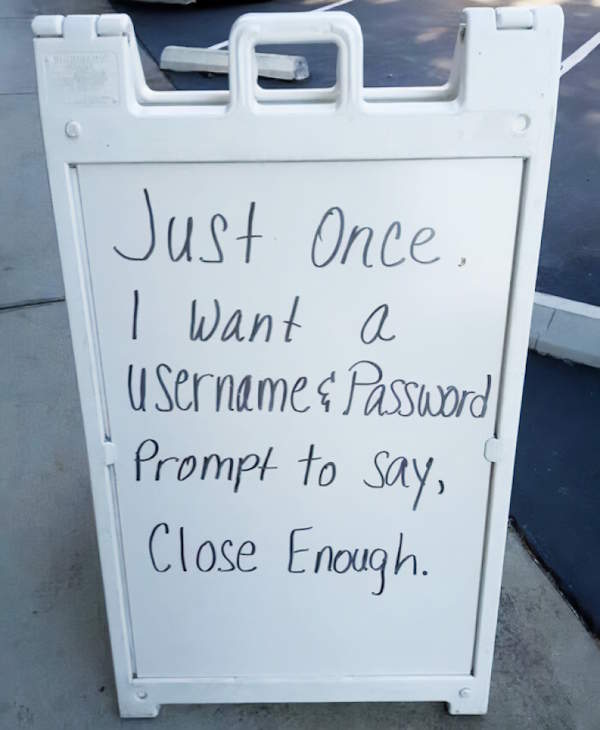 Just Once,
I Want a
Username & Password
Prompt to say,
Close Enough.